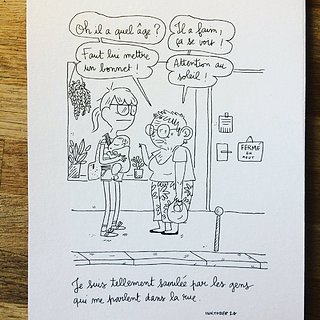 Oh il a quel âge ?
Faut lui mettre
un bonnet !
Il a faim,
ça se voit !
Attention au
soleil !
FERMÉ
EN
AOUT
Je suis tellement saoulée par les gens
qui me parlent dans la rue.
INKTOBER 26